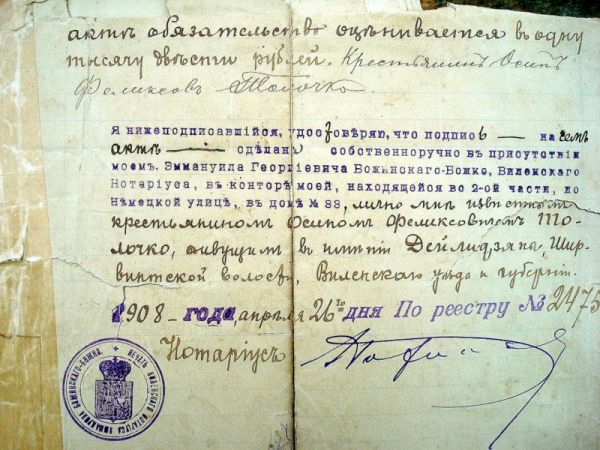 актъ обязательство оцѣнивается въ одну
тысячу двѣсти рублей. Крестьянинъ Осипъ
Феликсовъ Толочко.
Я нижеподписавшійся, удостовѣряю, что подпись — на семъ
актѣ — сдѣлана собственноручно въ присутствіи
моемъ, Эммануила Георгіевича Божинскаго-Божко, Виленскаго
Нотаріуса, въ конторѣ моей, находящейся во 2-ой части, по
Нѣмецкой улицѣ, въ домѣ № 88, лично мнѣ извѣстнымъ
крестьяниномъ Осипомъ Феликсовымъ То-
лочко, живущимъ въ имѣніи Дейлидзяна, Шир-
винтской волости, Виленскаго уѣзда и губерніи.
1908 — года, апрѣля 26го дня По реестру № 2475
Нотаріусъ